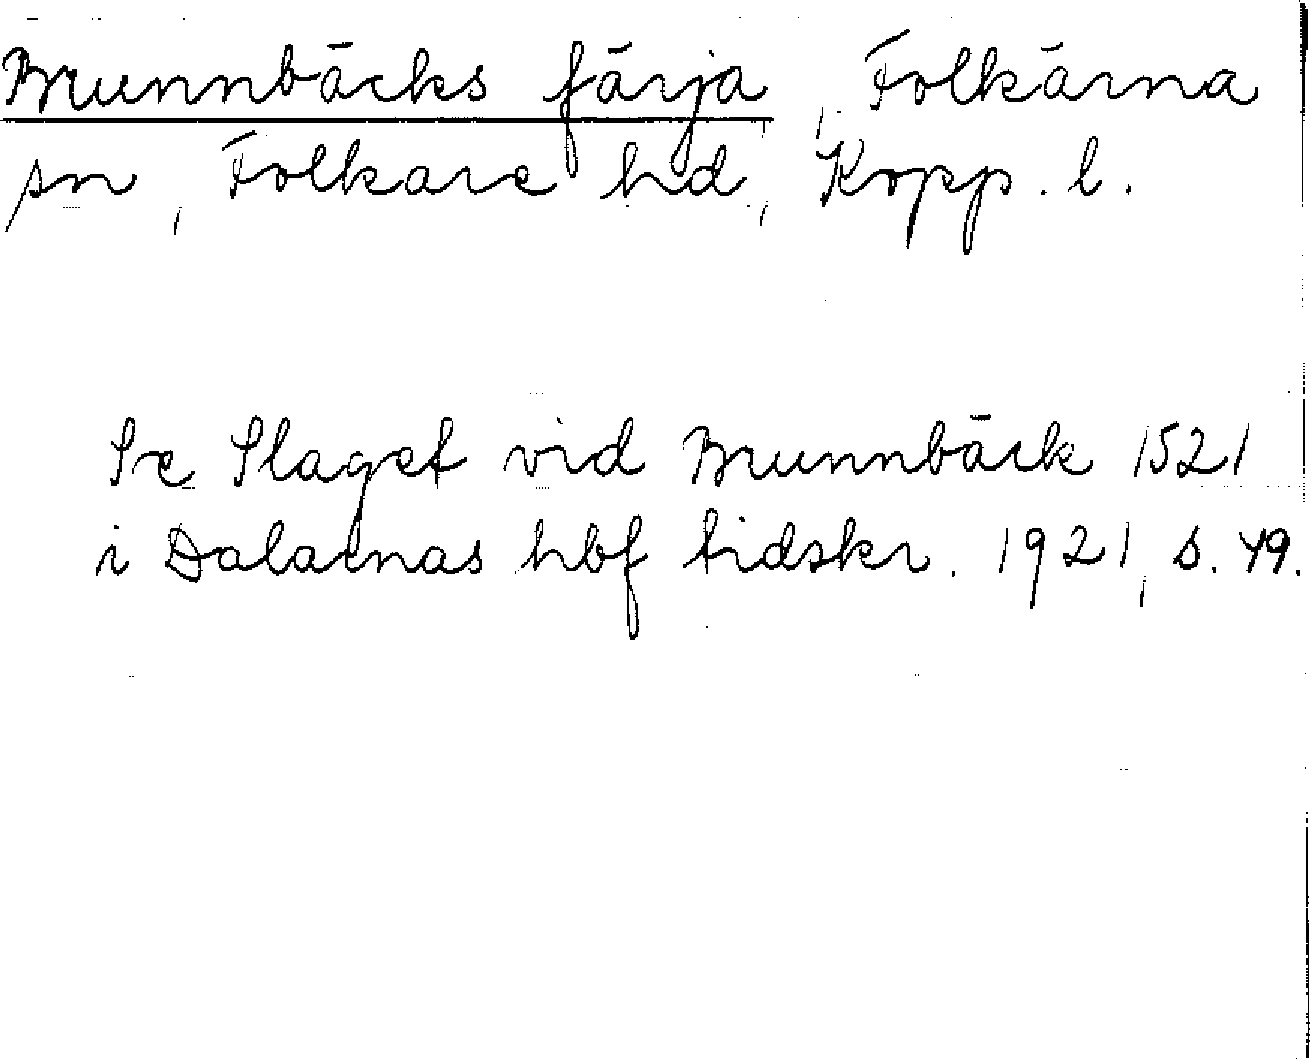 Brunnbäcks färja, Folkärna
sn, Folkare hd, Kopp. l.
Se Slaget vid Brunnbäck 1521
i Dalarnas hbf tidskr. 1921, s. 49.